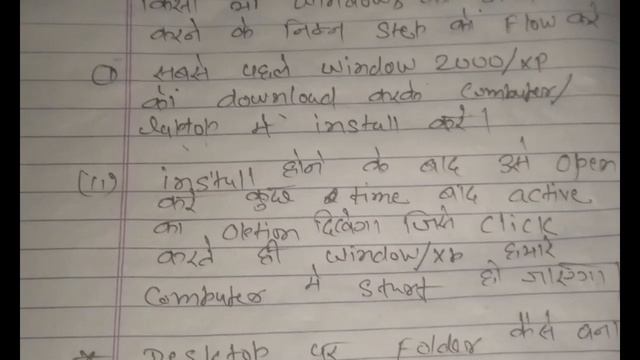 किसी भी Windows
करने के निम्न step को Flow करे
(i) सबसे पहले window 2000/xp
को download करके computer/
laptop मे install करे।
(ii) install होने के बाद उसे open
करे कुछ time बाद active
का option दिखेगा जिसे click
करते ही window/xp हमारे
computer मे start हो जाएगा।
* Desktop पर Folder कैसे बना